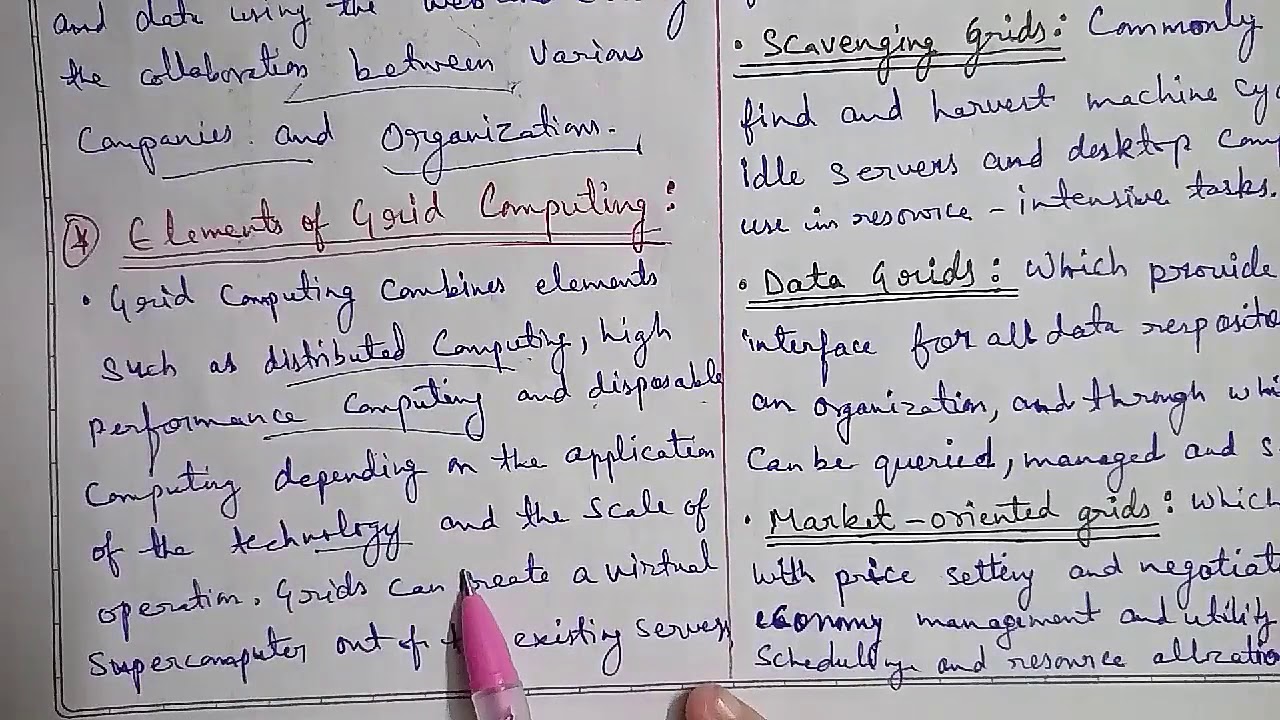 and data using the
the collaboration between various
Companies and Organizations.
* Elements of Grid Computing:
• Grid Computing Combines elements
Such as distributed Computing, high
performance Computing and disposable
Computing depending on the application
of the technology and the scale of
operation. Grids can create a virtual
Supercomputer out of existing servers
• Scavenging Grids: Commonly
find and harvest machine cyc
idle servers and desktop Com
use in resource - intensive tasks.
• Data Grids: which provide
interface for all data resposito
an organization, and through whi
Can be queried, managed and s
• Market-oriented grids: which
with price setting and negotiat
economy management and utility
Scheduling and resource allocatio